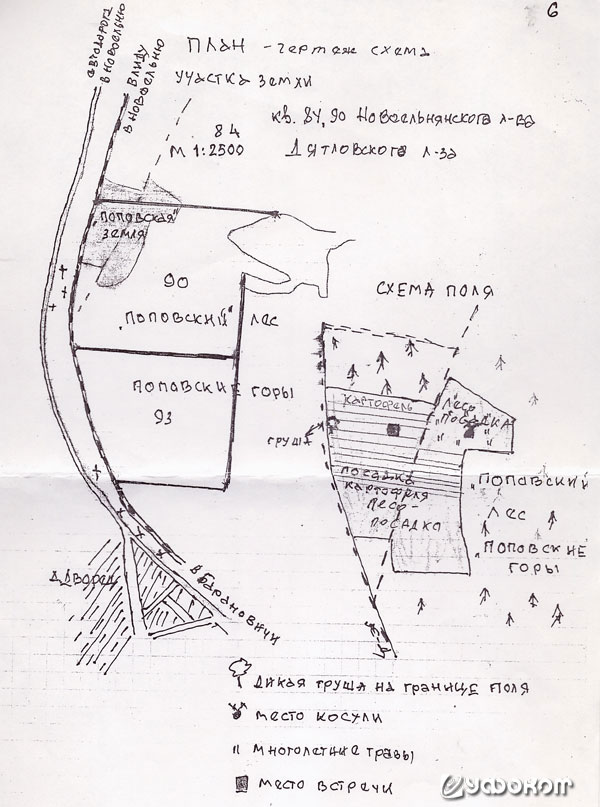 6
автодорога
в Новоельню
в Лиду
в Новоельню
ПЛАН - чертеж схема
участка земли
кв. 84, 90 Новоельнянского л-ва
84
М 1:2500 Дятловского л-за
„ПОПОВСКАЯ"
земля
90
„ПОПОВСКИЙ" ЛЕС
ПОПОВСКИЕ ГОРЫ
93
д. Дворец
в Барановичи
СХЕМА ПОЛЯ
КАРТОФЕЛЬ
ЛЕСО-
ПОСАДКА
груша
ПОСАДКА
КАРТОФЕЛЯ
ЛЕСО-
ПОСАДКА
„ПОПОВСКИЙ
ЛЕС
„ПОПОВСКИЕ
ГОРЫ
Ж-Д
дикая груша на границе поля
место косули
" многолетние травы
место встречи
Уфоком